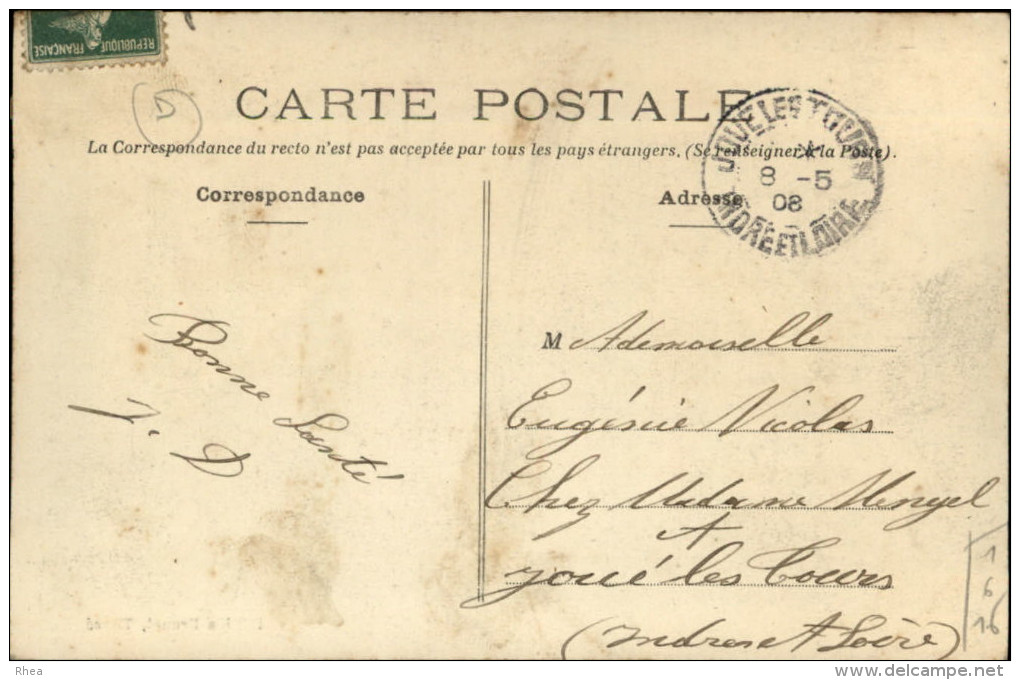 RÉPUBLIQUE FRANÇAISE
CARTE POSTALE
La Correspondance du recto n'est pas acceptée par tous les pays étrangers. (Se renseigner à la Poste).
Correspondance
Adresse
JOUE LES TOURS
8 -5
08
INDRE ET LOIRE
Bonne Santé
D
M Ademoiselle
Eugénie Nicolas
Chez Madame Menyel
A
joué les Tours
(Indre et Loire)
1
6
16
Rhea
www.delcampe.net